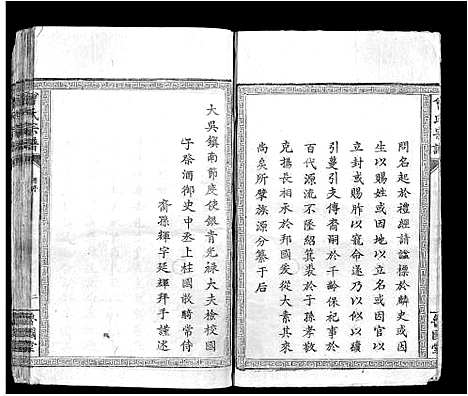 問名起於禮經請諡標於麟史或因
生以賜姓或因地以立名或因官以
立封或賜胙以寵命遂乃以似以續
引蔓引支傳裔嗣於千齡保祀事於
百代源流不墜紹箕裘於子孫孝敬
克揚長相承於邦國爰從大素其來
尚矣所孳族源分纂于后
大吳鎮南節度使銀青光祿大夫檢校國
子祭酒御史中丞上柱國散騎常侍
裔孫輝字延輝拜手謹述
曾氏宗譜
魯國堂